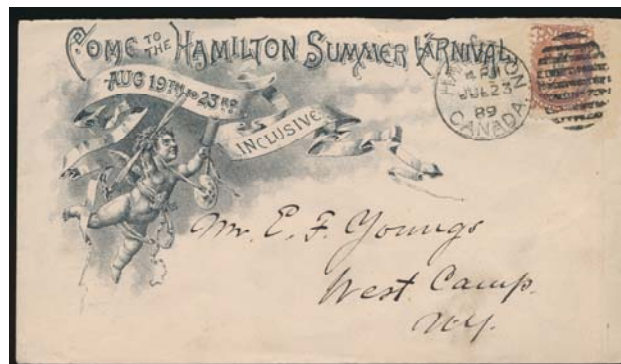 COME TO THE HAMILTON SUMMER CARNIVAL
AUG 19TH TO 23RD
INCLUSIVE
HAMILTON
4 PM
JUL 23
89
CANADA.
Mr. E. F. Youngs
West Camp.
NY.